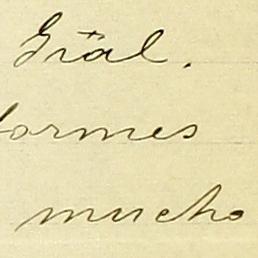 Gräl.
formes
mucho